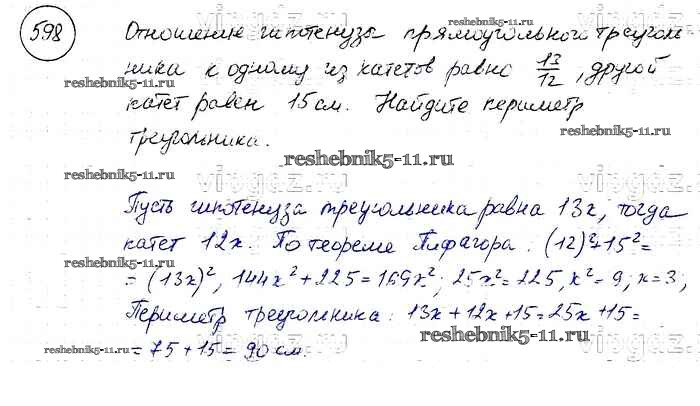 598
Отношение гипотенузы прямоугольного треуголь
ника к одному из катетов равно 13/12, другой
катет равен 15 см. Найдите периметр
треугольника.
Пусть гипотенуза треугольника равна 13x, тогда
катет 12x. По теореме Пифагора: (12)²+15²=
= (13x)², 144x²+225=169x²; 25x²=225, x²=9; x=3;
Периметр треугольника: 13x+12x+15=25x+15=
=75+15=90 см.
reshebnik5-11.ru
reshebnik5-11.ru
reshebnik5-11.ru
reshebnik5-11.ru
reshebnik5-11.ru
reshebnik5-11.ru
reshebnik5-11.ru
reshebnik5-11.ru
reshebnik5-11.ru